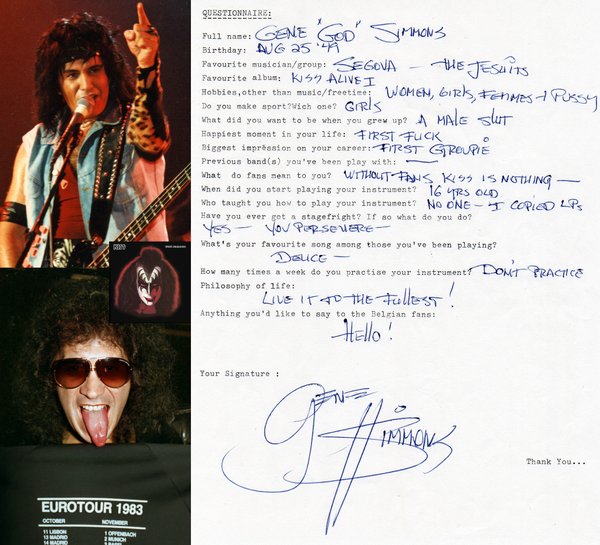 QUESTIONNAIRE:
Full name: GENE "GOD" SIMMONS
Birthday: AUG 25 '49
Favourite musician/group: SEGOVA — THE JESUITS
Favourite album: KISS ALIVE I
Hobbies,other than music/freetime: WOMEN, GIRLS, FEMMES + PUSSY
Do you make sport?Wich one? GIRLS
What did you want to be when you grew up? A MALE SLUT
Happiest moment in your life: FIRST FUCK
Biggest impression on your career: FIRST GROUPIE
Previous band(s) you've been play with: —
What do fans mean to you? WITHOUT FANS KISS IS NOTHING —
When did you start playing your instrument? 16 YRS OLD
Who taught you how to play your instrument? NO ONE — I COPIED LPs
Have you ever got a stagefright? If so what do you do?
YES — YOU PERSEVERE —
What's your favourite song among those you've been playing?
DEUCE —
How many times a week do you practise your instrument? DON'T PRACTICE
Philosophy of life:
LIVE IT TO THE FULLEST!
Anything you'd like to say to the Belgian fans:
HELLO!
Your Signature :
GENE SIMMONS
Thank You...
KISS
EUROTOUR 1983
OCTOBER NOVEMBER
11 LISBON 1 OFFENBACH
13 MADRID 2 MUNICH
14 MADRID